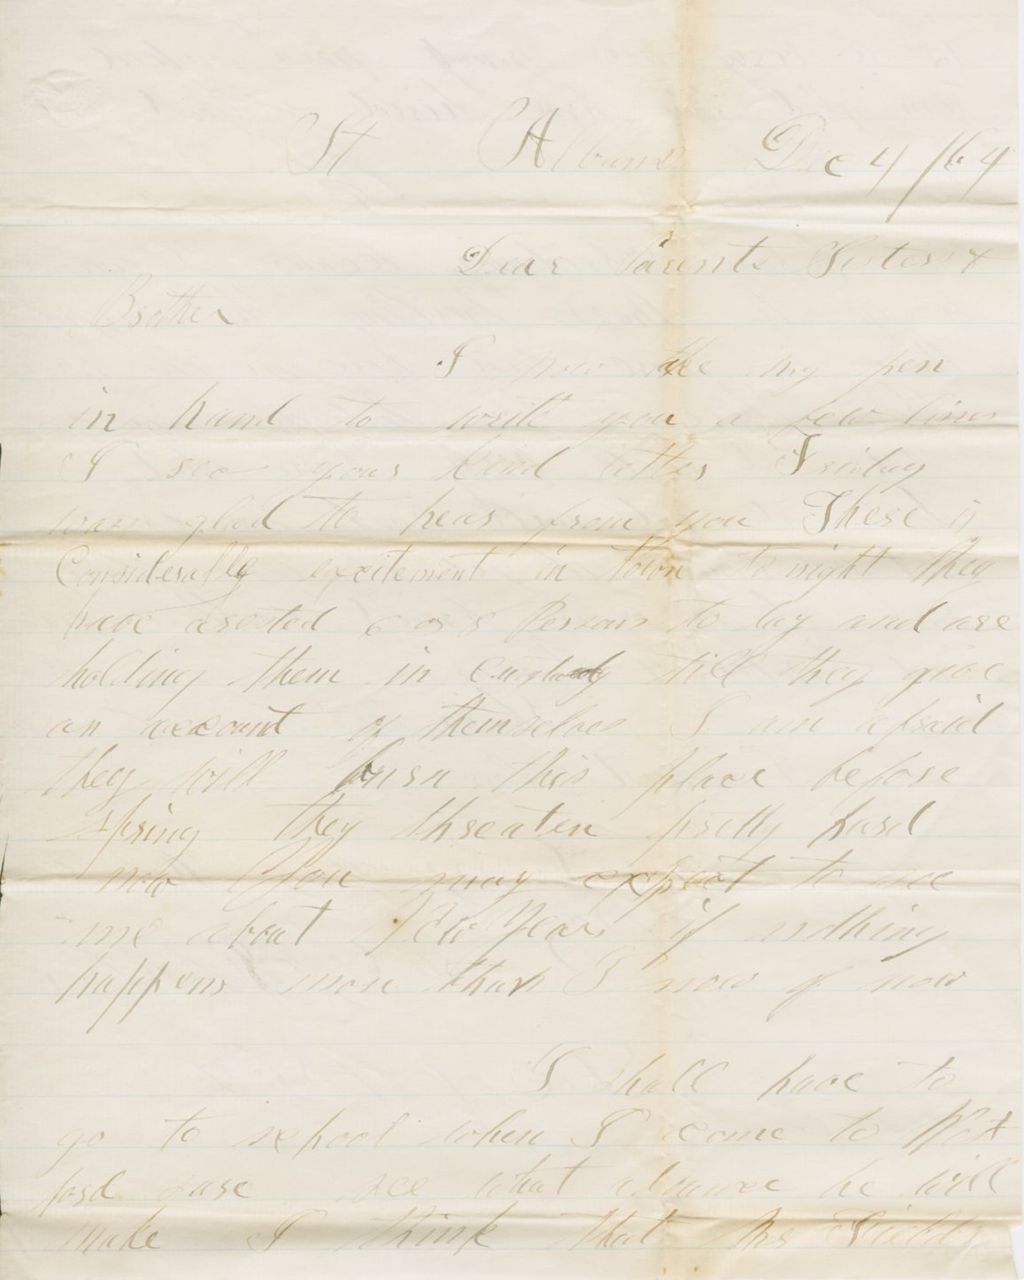 St Albans Dec 4 /64
Dear Parents Sisters &
Brother
I now take my pen
in hand to write you a few lines
I rec your kind letter Friday
was glad to hear from you There is
Considerably excitement in town to night they
have arested 6 or 8 Persons to day and are
holding them in Custody till they give
an account of themselves I am afraid
they will burn this place before
Spring they threaten pretty hard
now You may expect to see
me about New Years if nothing
happens more than I now of now
I shall have to
go to school when I come to
see what advance he will
make I think that Mrs